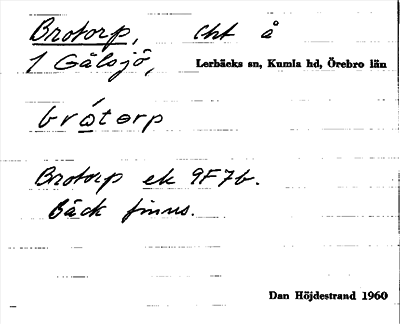 Brotorp, cht å
1 Gålsjö, Lerbäcks sn, Kumla hd, Örebro län
bråtorp
Brotorp ek 9F7b.
Bäck finns.
Dan Höjdestrand 1960